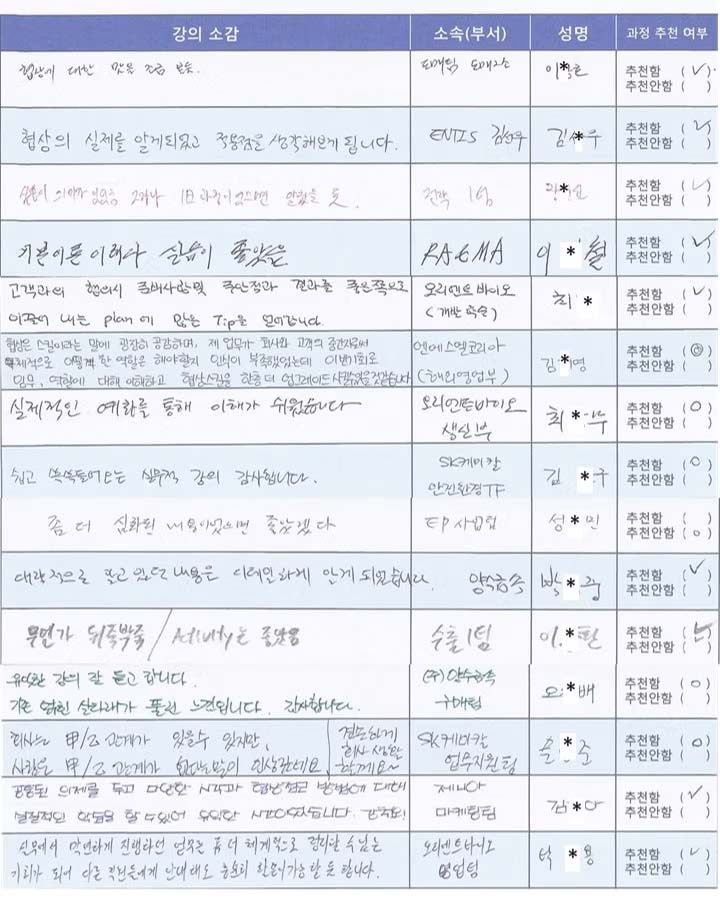 강의 소감 소속(부서) 성명 과정 추천 여부
협상에 대한 맛을 조금 보듯. 이*호 추천함 (✓)
추천안함 ( )
협상의 실제를 알게되었고 적용점을 생각해보게 됩니다. ENTIS 김*우 추천함 (✓)
추천안함 ( )
2일이나 전략 1팀 추천함 (✓)
추천안함 ( )
기본이론이려나 실습이 좋았음 RA&MA 이*철 추천함 (✓)
추천안함 ( )
고객과의 협의시 준비사항및 주안점과 결과를 좋은쪽으로 오리엔트 바이오 최* 추천함 (✓)
이끌어 내는 plan에 많은 Tip을 얻어갑니다. 추천안함 ( )
협상은 스킬이라는 말에 굉장히 공감하며, 제 업무가 회사와 고객의 중간자로써 엔에스엘코리아 김*영 추천함 (◎)
어떻게 한 역할은 해야할지 인식이 부족했었는데 이번기회로 (해외영업부) 추천안함 ( )
임무, 역할에 대해 이해하고 협상스킬을 한층 더 업그레이드 시킬수있을것같습니다
실제적인 예화를 통해 이해가 쉬웠습니다 오리엔트바이오 최* 추천함 (○)
생산부 추천안함 ( )
쉽고 쏙쏙들어오는 실무적 강의 감사합니다. SK케미칼 김*구 추천함 (○)
안전환경TF 추천안함 ( )
좀 더 심화된 내용이었으면 좋았겠다 EP사업팀 성*민 추천함 ( )
추천안함 (○)
대략적으로 알고 있던 내용은 디테일하게 알게 되었습니다. 양수금속 박*중 추천함 (✓)
추천안함 ( )
무언가 뒤죽박죽 / Activity는 좋았음 수출1팀 이*환 추천함
추천안함 ( )
유익한 강의 잘 듣고 갑니다. (주)양수금속 오*배 추천함 (○)
기존 얽힌 실타래가 풀린 느낌입니다. 감사합니다. 구매팀 추천안함 ( )
회사는 甲/乙관계가 있을수 있지만, 겸손하게 SK케미칼 *준 추천함 (○)
사람은 甲/乙관계가 없다는말이 인상깊네요. 회사 생활 할게요~ 업무지원팀 추천안함 ( )
공통된 의제를 두고 다양한 시각과 협상접근 방법에 대해 제니아 김*아 추천함 (✓)
실질적인 학습을 할 수 있어 유익한 시간이었습니다. 마케팅팀 추천안함 ( )
실무에서 막연하게 진행하던 업무를 좀 더 체계적으로 정리할 수 있는 오리엔트바이오 박*용 추천함 (✓)
기회가 되어 다른 직원들에게 안내해도 충분히 활용이 가능할 듯 합니다. 영업팀 추천안함 ( )